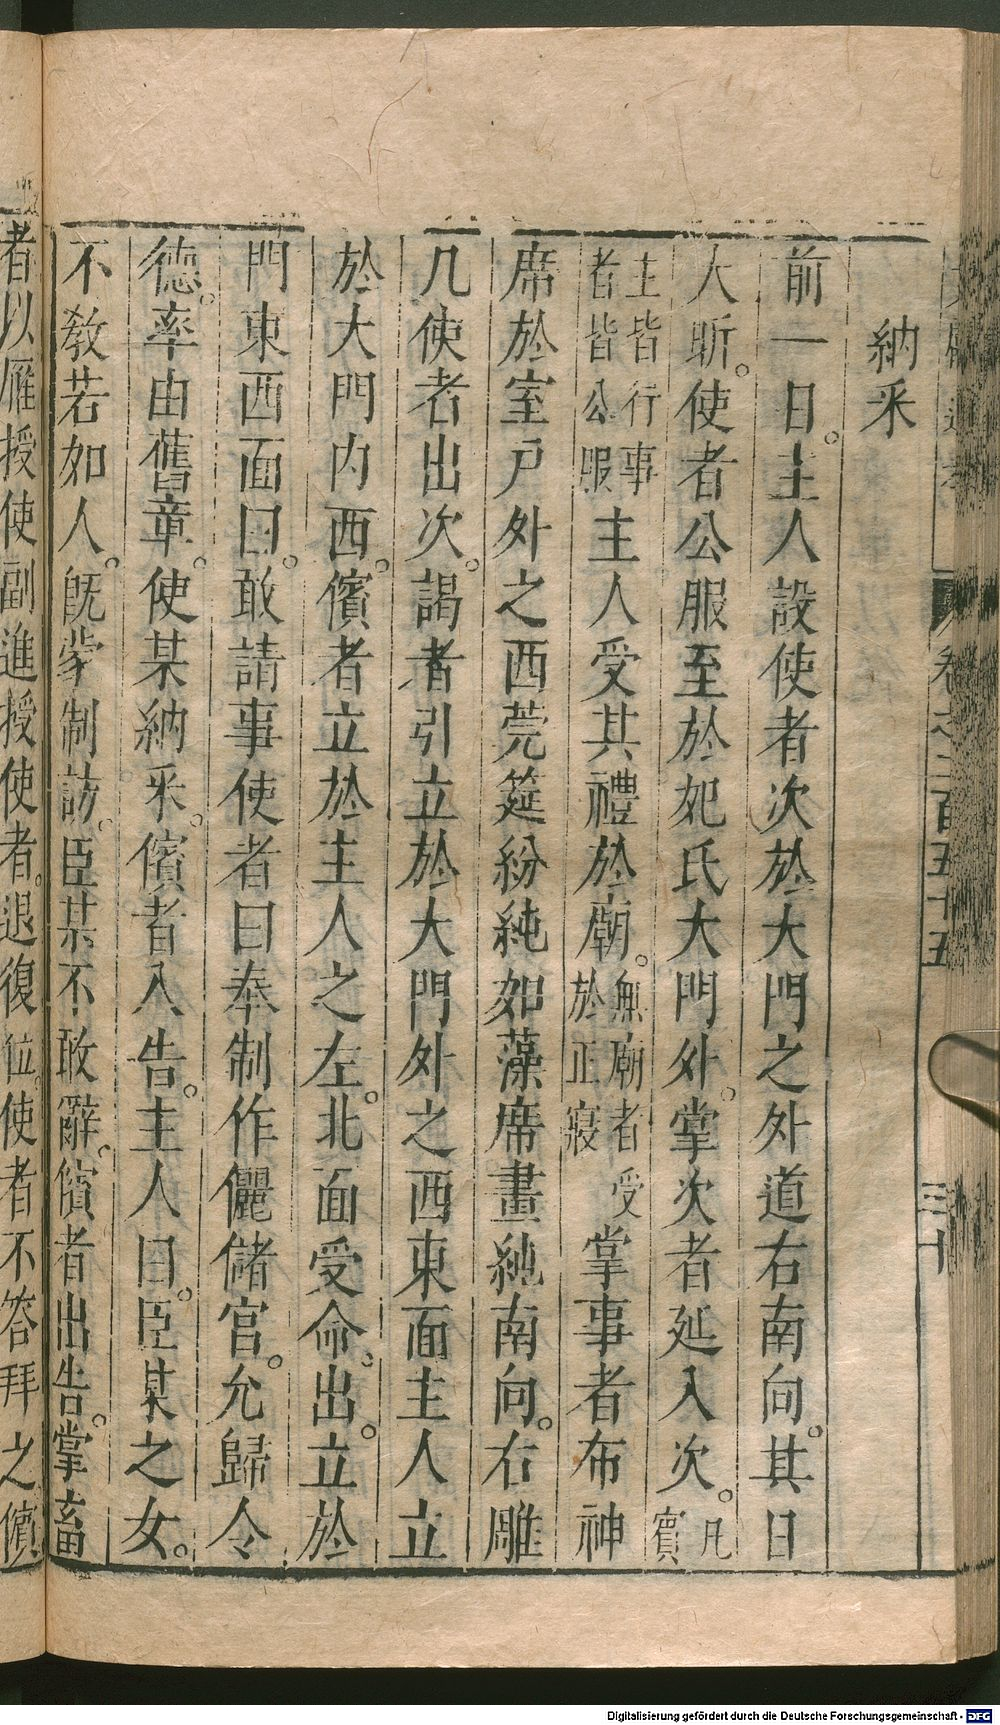 納采
前一日。主人設使者次於大門之外道右南向。其日
大昕。使者公服至於妃氏大門外。掌次者延入次。凡賓
主皆行事者皆公服主人受其禮於廟。無廟者受於正寢掌事者布神
席於室戶外之西莞筵紛純如藻席畫純南向。右雕
几使者出次。謁者引立於大門外之西東面主人立
於大門內西。儐者立於主人之左。北面受命。出。立於
門東西面曰。敢請事使者曰奉制作儷儲宮。允歸令
德。率由舊章。使某納采。儐者入告。主人曰。臣某之女。
不敎若如人。旣蒙制訪。臣某不敢辭。儐者出告。掌畜
者以雁授使副進授使者。退復位。使者不答拜之儐
卷之二百五十五
三十
Digitalisierung gefördert durch die Deutsche Forschungsgemeinschaft - DFG